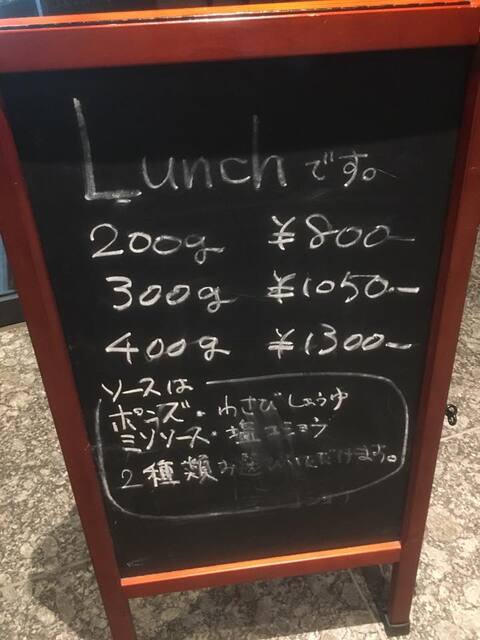 Lunchです。
200g ¥800-
300g ¥1050.-
400g ¥1300-
ソースは
ポンズ・わさびしょうゆ
ミソソース・塩コショウ
2種類お選びいただけます。